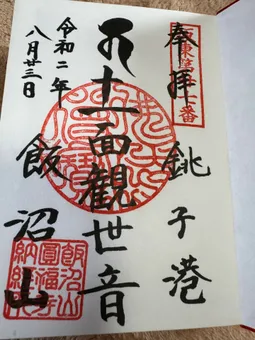 奉拝
坂東第廿七番
銚子港
十一面観世音
飯沼山
令和二年
八月廿三日
飯沼山
圓福寺
納経